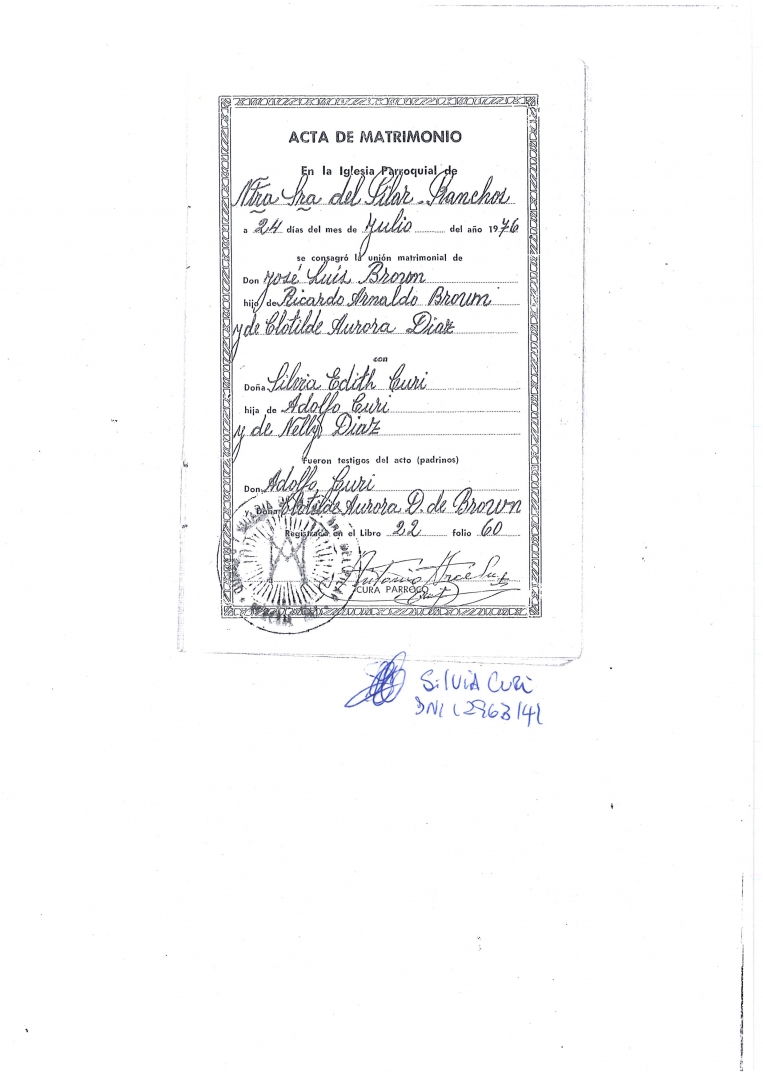 ACTA DE MATRIMONIO
En la Iglesia Parroquial de
Ntra Sra del Pilar - Ranchos
a 24 días del mes de Julio del año 1976
se consagró la unión matrimonial de
Don José Luís Brown
hijo de Ricardo Arnaldo Brown
y de Clotilde Aurora Diaz
con
Doña Silvia Edith Curi
hija de Adolfo Curi
y de Nelly Diaz
Fueron testigos del acto (padrinos)
Don Adolfo Curi
Doña Clotilde Aurora D. de Brown
Registrada en el Libro 22 folio 60
Antonio
CURA PARROCO
Silvia Curi
DNI 12963141